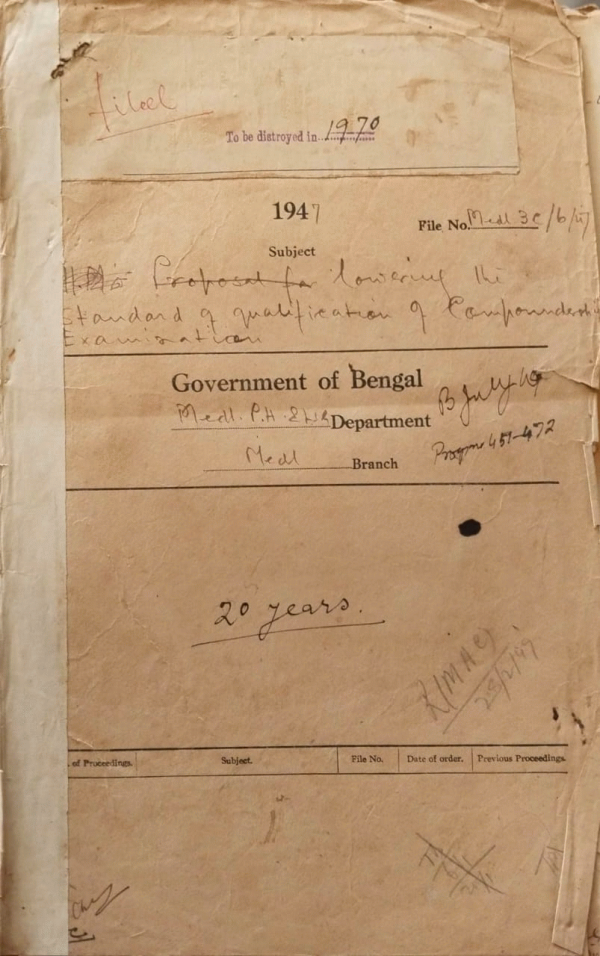 filed
To be distroyed in 1970
1947
File No. Medl 3C/6/47
Subject
Proposal for lowering the
Standard of qualification of Compoundership
Examination
Government of Bengal
Medl. P.H. & LSG Department
B July 49
Medl Branch
Progs 451-472
20 years.
of Proceedings.
Subject.
File No.
Date of order.
Previous Proceedings.